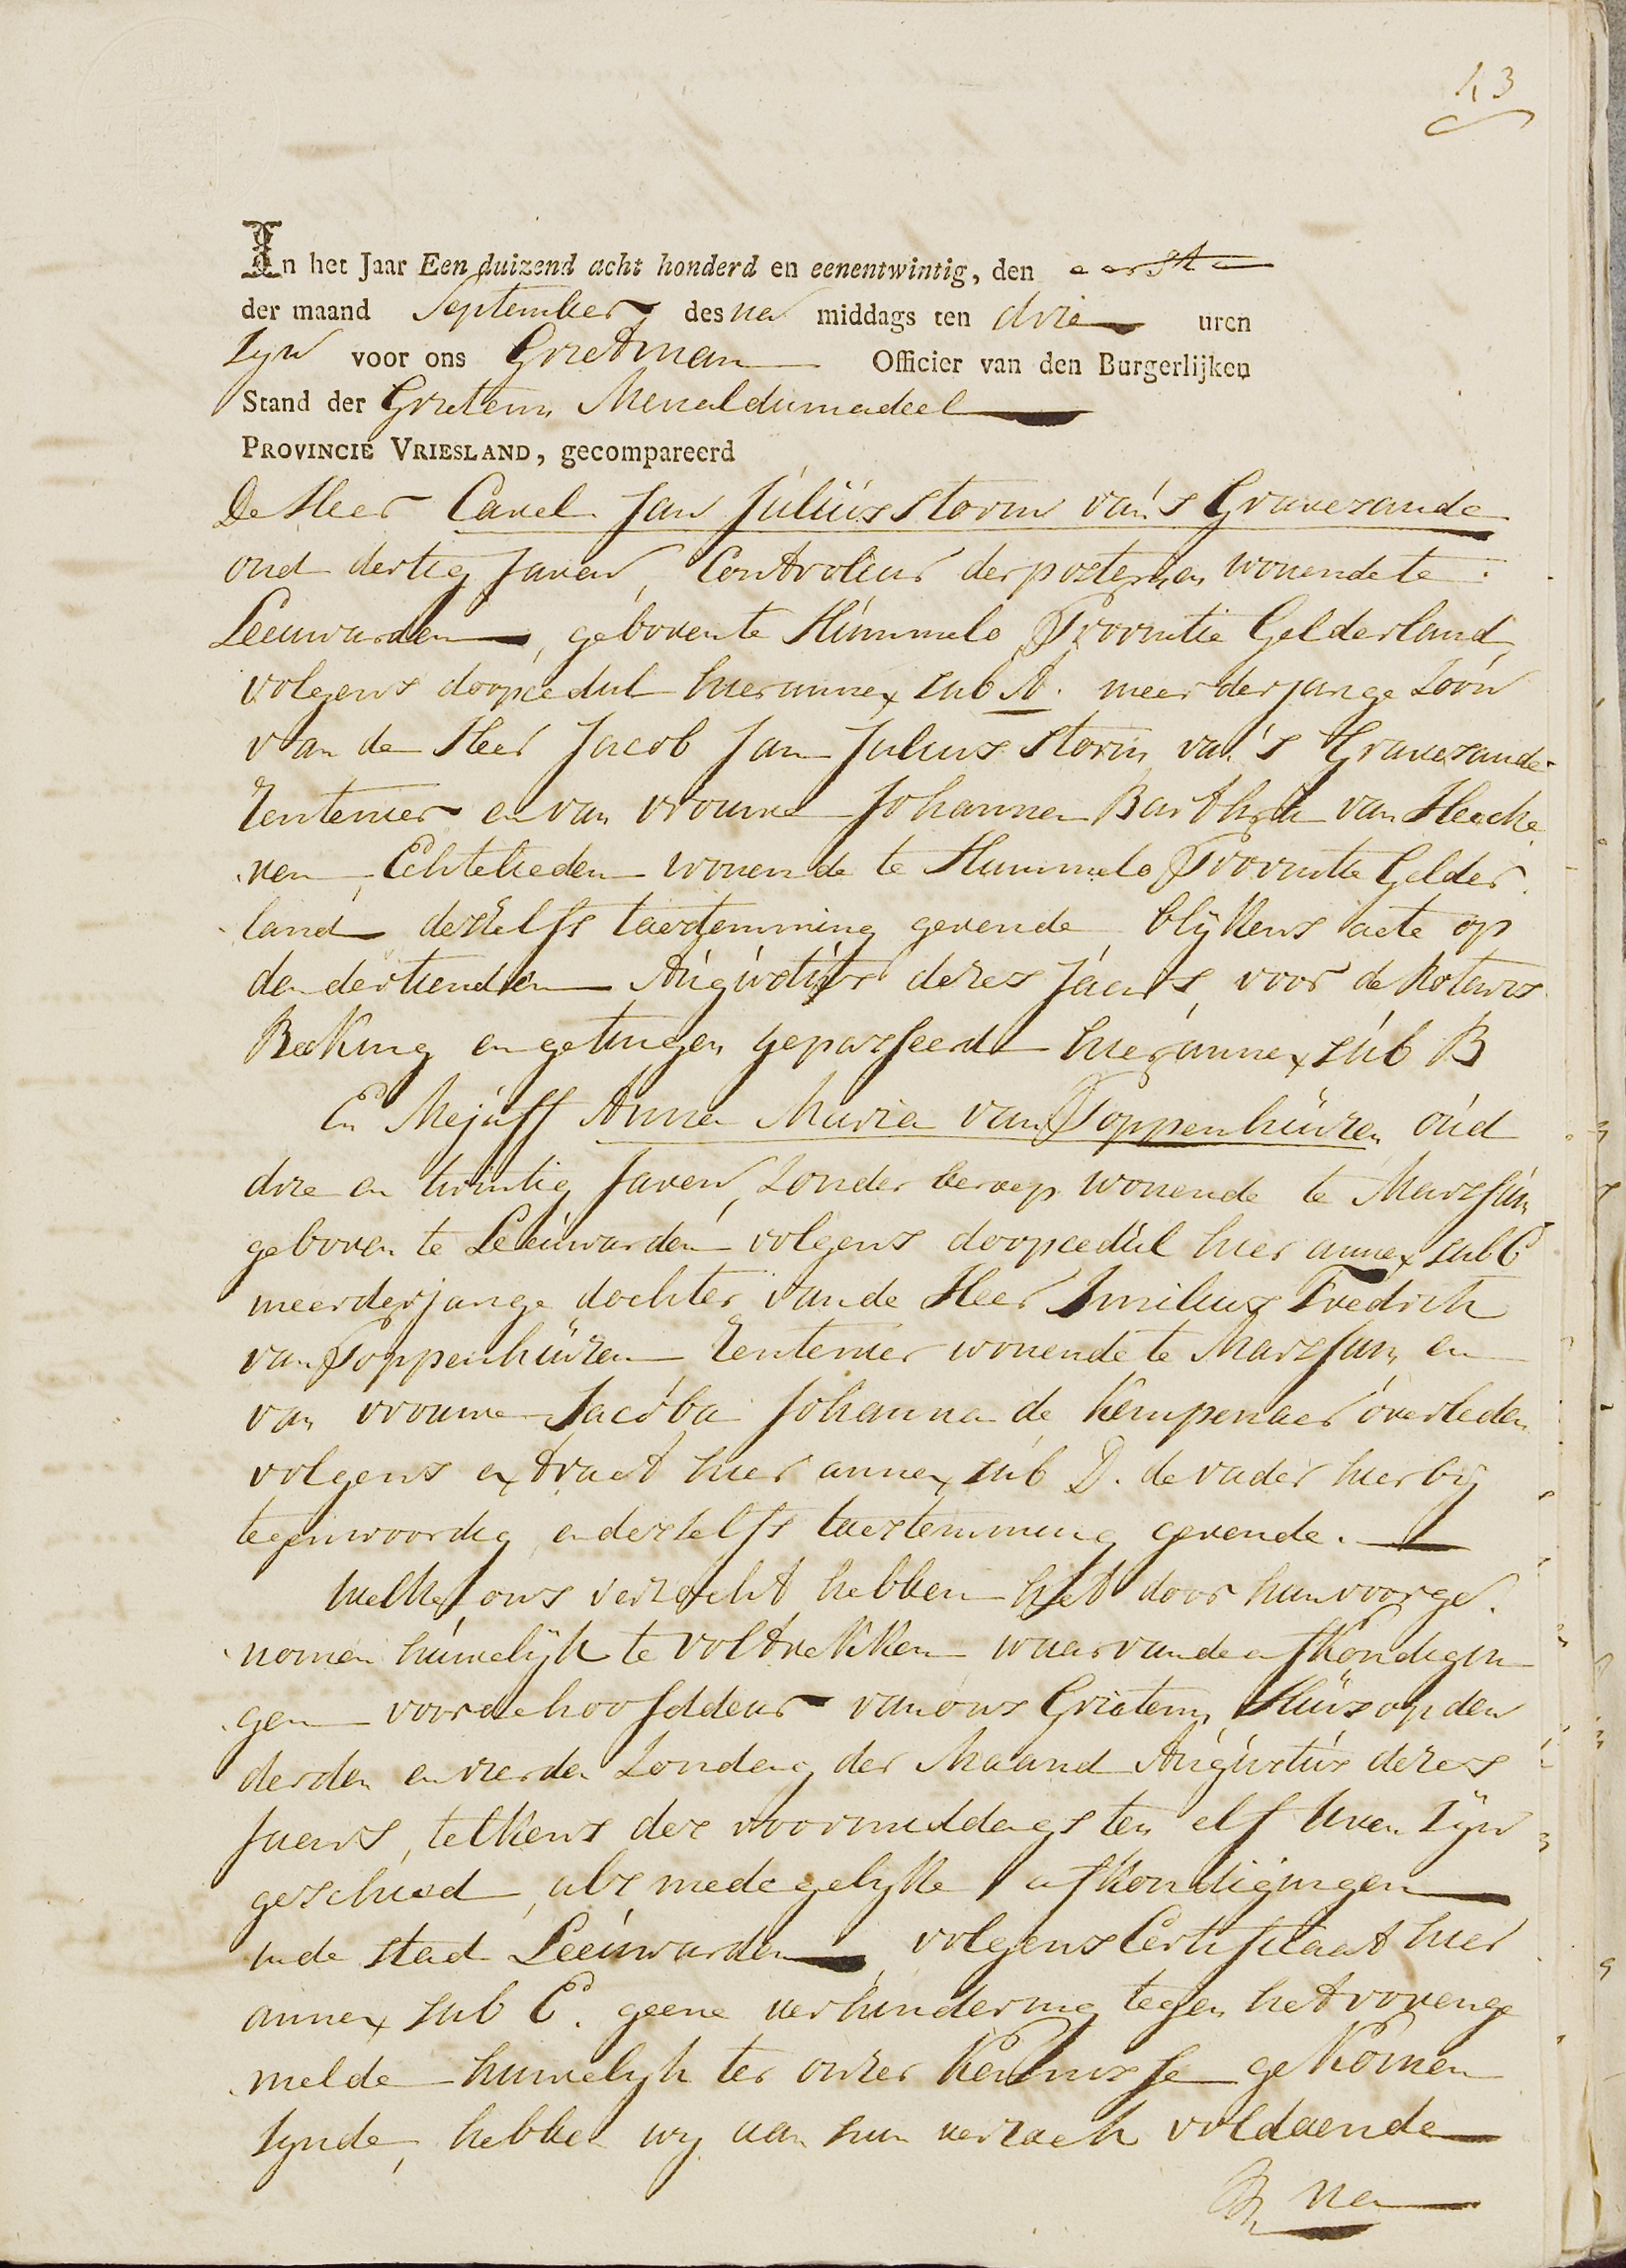 43
In het Jaar Een duizend acht honderd en eenentwintig, den eerste
der maand September des na middags ten drie uren
Zyn voor ons Grietman Officier van den Burgerlijken
Stand der Grieteny Menaldumadeel
PROVINCIE VRIESLAND, gecompareerd
De Heer Carel Jan Júliús Storm van 's Gravesande
oud dertig Jaren, Controleur der posteryen wonende te
Leeuwarden, geboren te Húmmelo Provintie Gelderland
volgens doopcedul hier annex sub A. meerderjarige Zoon
van de Heer Jacob Jan Julius Storm van 's Gravesande
Rentenier en van vrouwe Johanna Bartha van Heecke
ren Echtelieden wonende te Hummelo Provintie Gelder
land deszelfs toestemming gevende blykens acte op
den dertienden Aúgústús dezes Jaars, voor de Notaris
Beeking en getuigen gepasseerd hier annex súb B
En Mejuff Anna Maria van Poppenhúizen oúd
drie en twintig Jaren, Zonder beroep wonende te Marssúm
geboren te Leeúwarden volgens doopcedúl hier annex sub C
meerderjarige dochter van de Heer Imilius Fredrik
van Poppenhúizen Rentenier wonende te Marssum, en
van vrouwe Jacoba Johanna de Kempenaer overleden
volgens extract hier annex súb D. de vader hier by
tegenwoordig en deszelfs toestemming gevende.
Welke ons verzocht hebben het door hun voorge
nomen húwelijk te voltrekken waarvan de afkondigin
gen voor de hoofddeur van ons Grieteny Húis op den
derden en vierden Zondag der Maand Aúgústús dezes
Jaars, telkens des voormiddags ten elf Uren zyn
geschied, als mede gelyke afkondigingen
in de stad Leeúwarden volgens Certificaat hier
annex sub E. geene verhindering tegen het vorenge
melde huwelyk ter onzer Kennisse gekomen
zynde, hebben wy aan hun verzoek voldoende
na